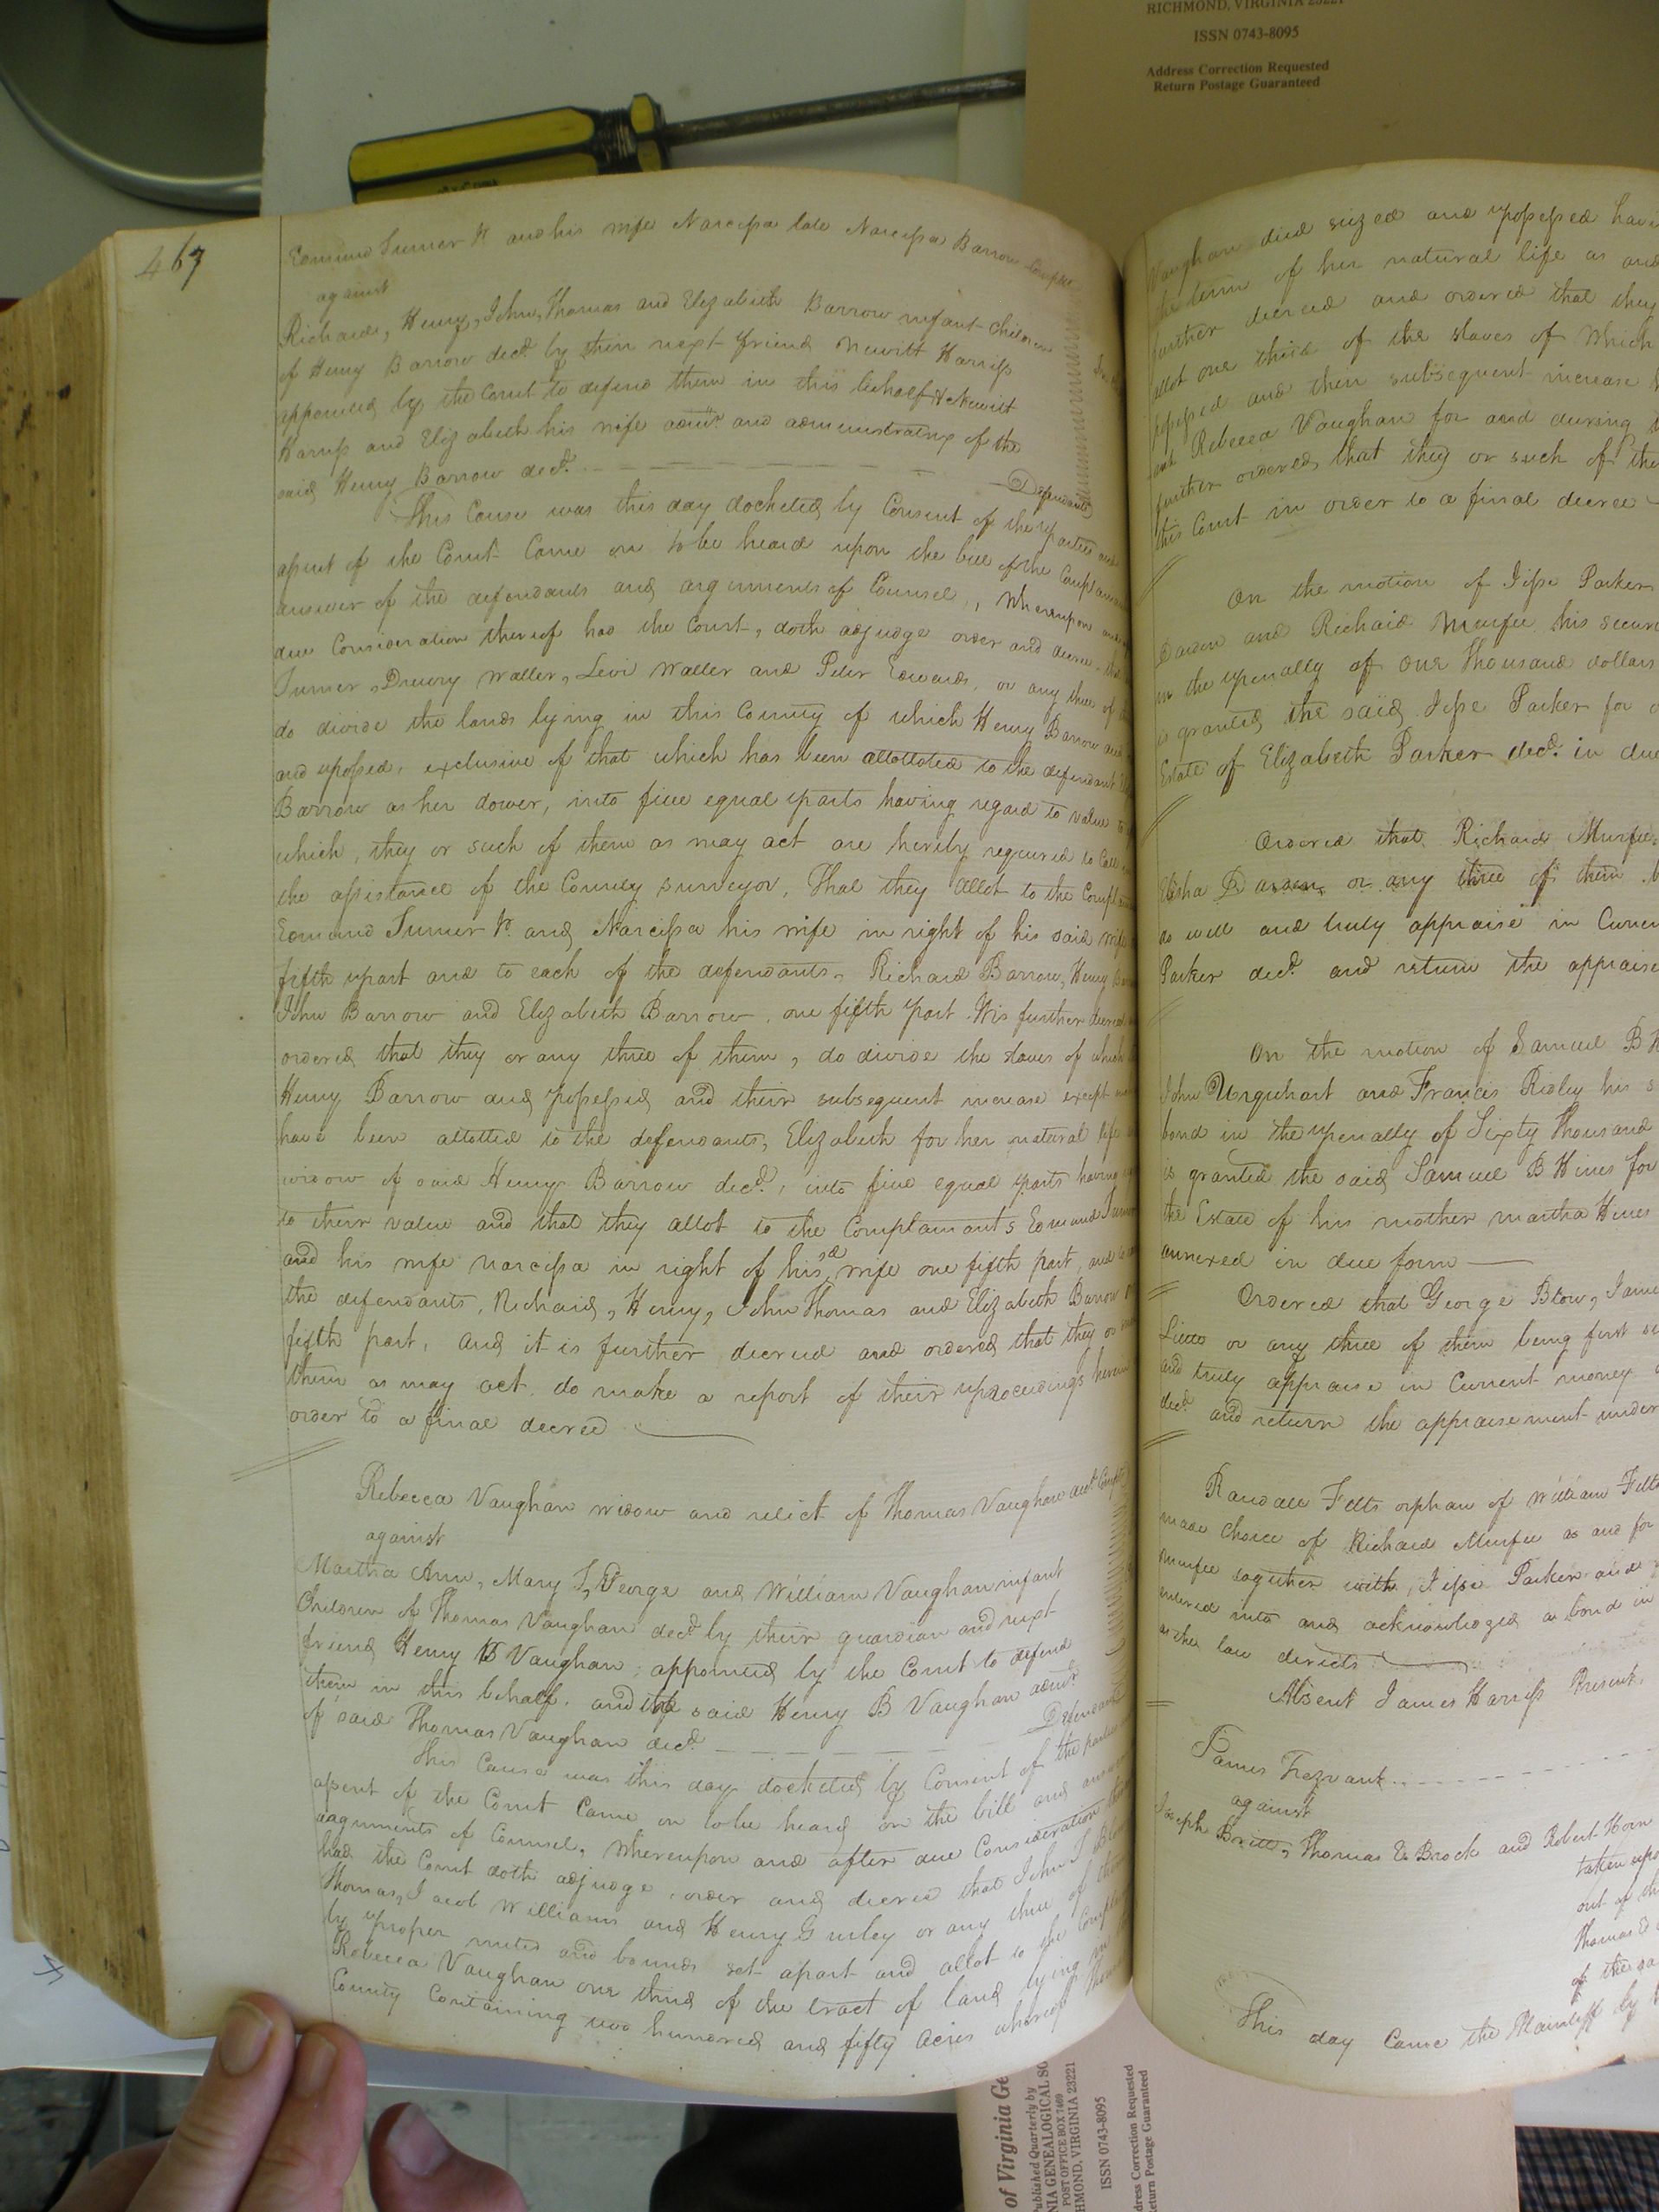 RICHMOND, VIRGINIA 23221
ISSN 0743-8095
Address Correction Requested
Return Postage Guaranteed
467
Edmund Turner Jr and his wife Narcissa late Narcissa Barrow
against
Richard, Henry, John, Thomas and Elizabeth Barrow infant children
of Henry Barrow decd. by their next friend Newitt Harriss
appointed by the Court to defend them in this behalf & Newitt
Harriss and Elizabeth his wife admr. and administratrix of the
said Henry Barrow decd.
Defendants
This Cause was this day docketed by Consent of the parties and
assent of the Court Came on to be heard upon the bill of the
answer of the defendants and arguments of Counsel, Whereupon and
due Consideration thereof had the Court, doth adjudge order and decree that
Turner, Drewry Waller, Levi Waller and Peter Edwards, or any three of
do divide the lands lying in this County of which Henry Barrow died
and possessed, exclusive of that which has been allotted to the defendant
Barrow as her dower, into five equal parts having regard to value
which, they or such of them as may act are hereby required to Call
the assistance of the County surveyor, That they allot to the
Edmund Turner Jr. and Narcissa his wife in right of his said wife
fifth part and to each of the defendants, Richard Barrow, Henry
John Barrow and Elizabeth Barrow, one fifth part. It is further decreed
ordered that they or any three of them, do divide the slaves of which
Henry Barrow died possessed and their subsequent increase except
have been allotted to the defendants, Elizabeth for her natural life
widow of said Henry Barrow decd., into five equal parts having
to their value and that they allot to the Complainants Edmund Turner
and his wife Narcissa in right of his sd wife one fifth part, and
the defendants, Richard, Henry, John Thomas and Elizabeth Barrow
fifth part, and it is further decreed and ordered that they or
them as may act, do make a report of their proceedings herein
order to a final decree
Rebecca Vaughan widow and relict of Thomas Vaughan decd.
against
Martha Ann, Mary T, George and William Vaughan infant
Children of Thomas Vaughan decd. by their guardian and next
friend Henry B Vaughan, appointed by the Court to defend
them in this behalf, and the said Henry B Vaughan admr.
of said Thomas Vaughan decd.
Defendants
This Cause was this day docketed by Consent of the parties
assent of the Court Came on to be heard on the bill and answer
arguments of Counsel, Whereupon and after due Consideration
had the Court doth adjudge, order and decree that John T Blow
Thomas, Jacob Williams and Henry Gurley or any three of them
by proper metes and bounds set apart and allot to the
Rebecca Vaughan one third of the tract of land lying in
County Containing two hundred and fifty Acres whereof Thomas
Vaughan died seized and possessed
the term of her natural life as and
further decreed and ordered that they
allot one third of the slaves of which
possessed and their subsequent increase
Rebecca Vaughan for and during
further ordered, that they or such of
this Court in order to a final decree
On the motion of Jesse Parker
Darden and Richard Murfee his
in the penalty of One Thousand dollars
is granted the said Jesse Parker for
Estate of Elizabeth Parker decd. in due
Ordered that Richard Murfee
Elisha Darden or any three of them
do well and truly appraise in
Parker decd. and return the
On the motion of Samuel B
John Urquhart and Francis Ridley his
bond in the penalty of Sixty Thousand
is granted the said Samuel B Hines for
the Estate of his mother Martha Hines
annexed in due form
Ordered that George Blow,
or any three of them being first
and truly appraise in Current money
decd. and return the appraisement under
Randall Felts orphan of William Felts
made Choice of Richard Murfee as and for
Murfee together with, Jesse Parker and
entered into and acknowledged a bond in
as the law directs
Absent James Harriss Present,
James Trezvant
against
Joseph Britt, Thomas E Brock and Robert Horn
taken
out of
Thomas E
of the
This day Came the Plaintiff by
of Virginia
Published Quarterly by
VIRGINIA GENEALOGICAL
POST OFFICE BOX 7469
RICHMOND, VIRGINIA 23221
ISSN 0743-8095
Address Correction Requested
Return Postage Guaranteed